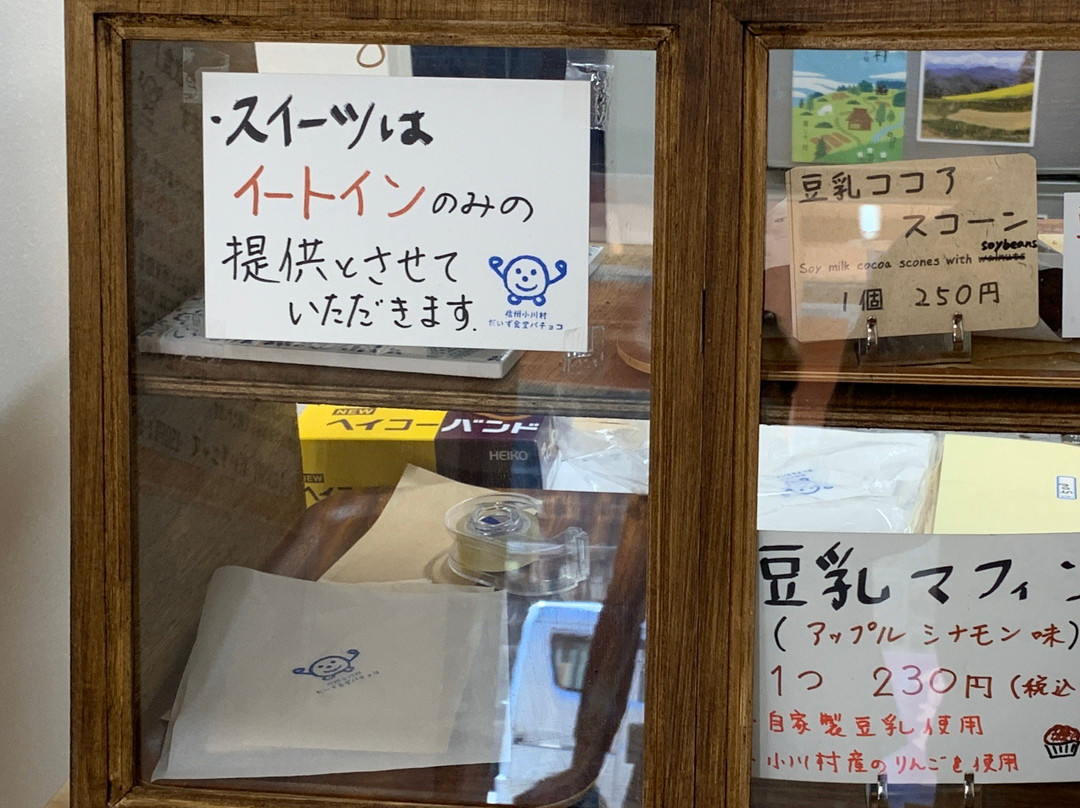 ・スイーツは
イートインのみの
提供とさせて
いただきます.
信州小川村
だいず食堂パチョコ
NEW
ヘイコーバンド
HEIKO
NEW
ヘイ
豆乳ココア
スコーン
soybeans
Soy milk cocoa scones with walnuts
1個 250円
豆乳マフィン
(アップルシナモン味)
1つ 230円(税込
自家製豆乳使用
小川村産のりんごを使用